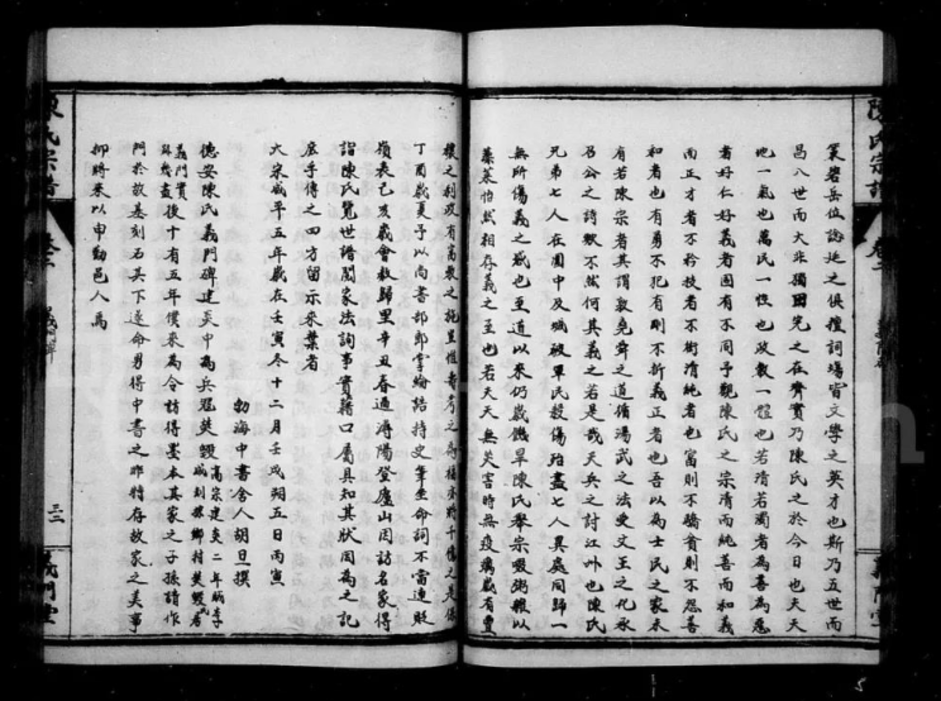 陳氏宗譜
卷二
義門碑
義門堂
筮磐岳位誌延之俱擅詞場皆文學之英才也斯乃五世而
昌八世而大非獨田完之在齊實乃陳氏之於今日也夫天
地一氣也萬民一性也政教一體也若清若濁者為善為惡
者好仁好義者固有不同予觀陳氏之宗清而純善而和義
而正才者不矜技者不衒清純者也富則不驕貧則不怨善
和者也有勇不犯有剛不折義正者也吾以為士民之家未
有若陳宗者其謂敦堯舜之道循湯武之法受文王之化永
召公之詩歟不然何其義之若是哉天兵之討江州也陳氏
兄弟七人在圍中及城破軍民殺傷殆盡七人異處同歸一
無所傷義之感也至道以來仍歲饑旱陳氏舉宗啜粥糲以
藜菜怡然相存義之至也若天無災害時無疫癘歲有豐
穰之利政有富教之
丁酉歲夏予以尚書部郎李綸結持史筆坐命詞不當連貶
嶺表己亥歲會赦歸里辛丑春過潯陽登廬山因訪名家得
詣陳氏覽世譜閱家法詢事實籍口屬具知其狀因為之記
庶乎傳之四方留示來葉者
大宋咸平五年歲在壬寅冬十二月壬戌朔五日丙寅
勃海中書舍人胡旦撰
德安陳氏義門碑建炎中為兵冦焚毀
高宗建炎二年
義門實
盡後十有五年僕來為令訪得墨本其家之子孫請作
門於故基刻石其下遂命男得中書之非特存故家之美事
抑將來以申勸邑人焉
陳氏宗譜
卷二
義門碑
三二
義門堂
5